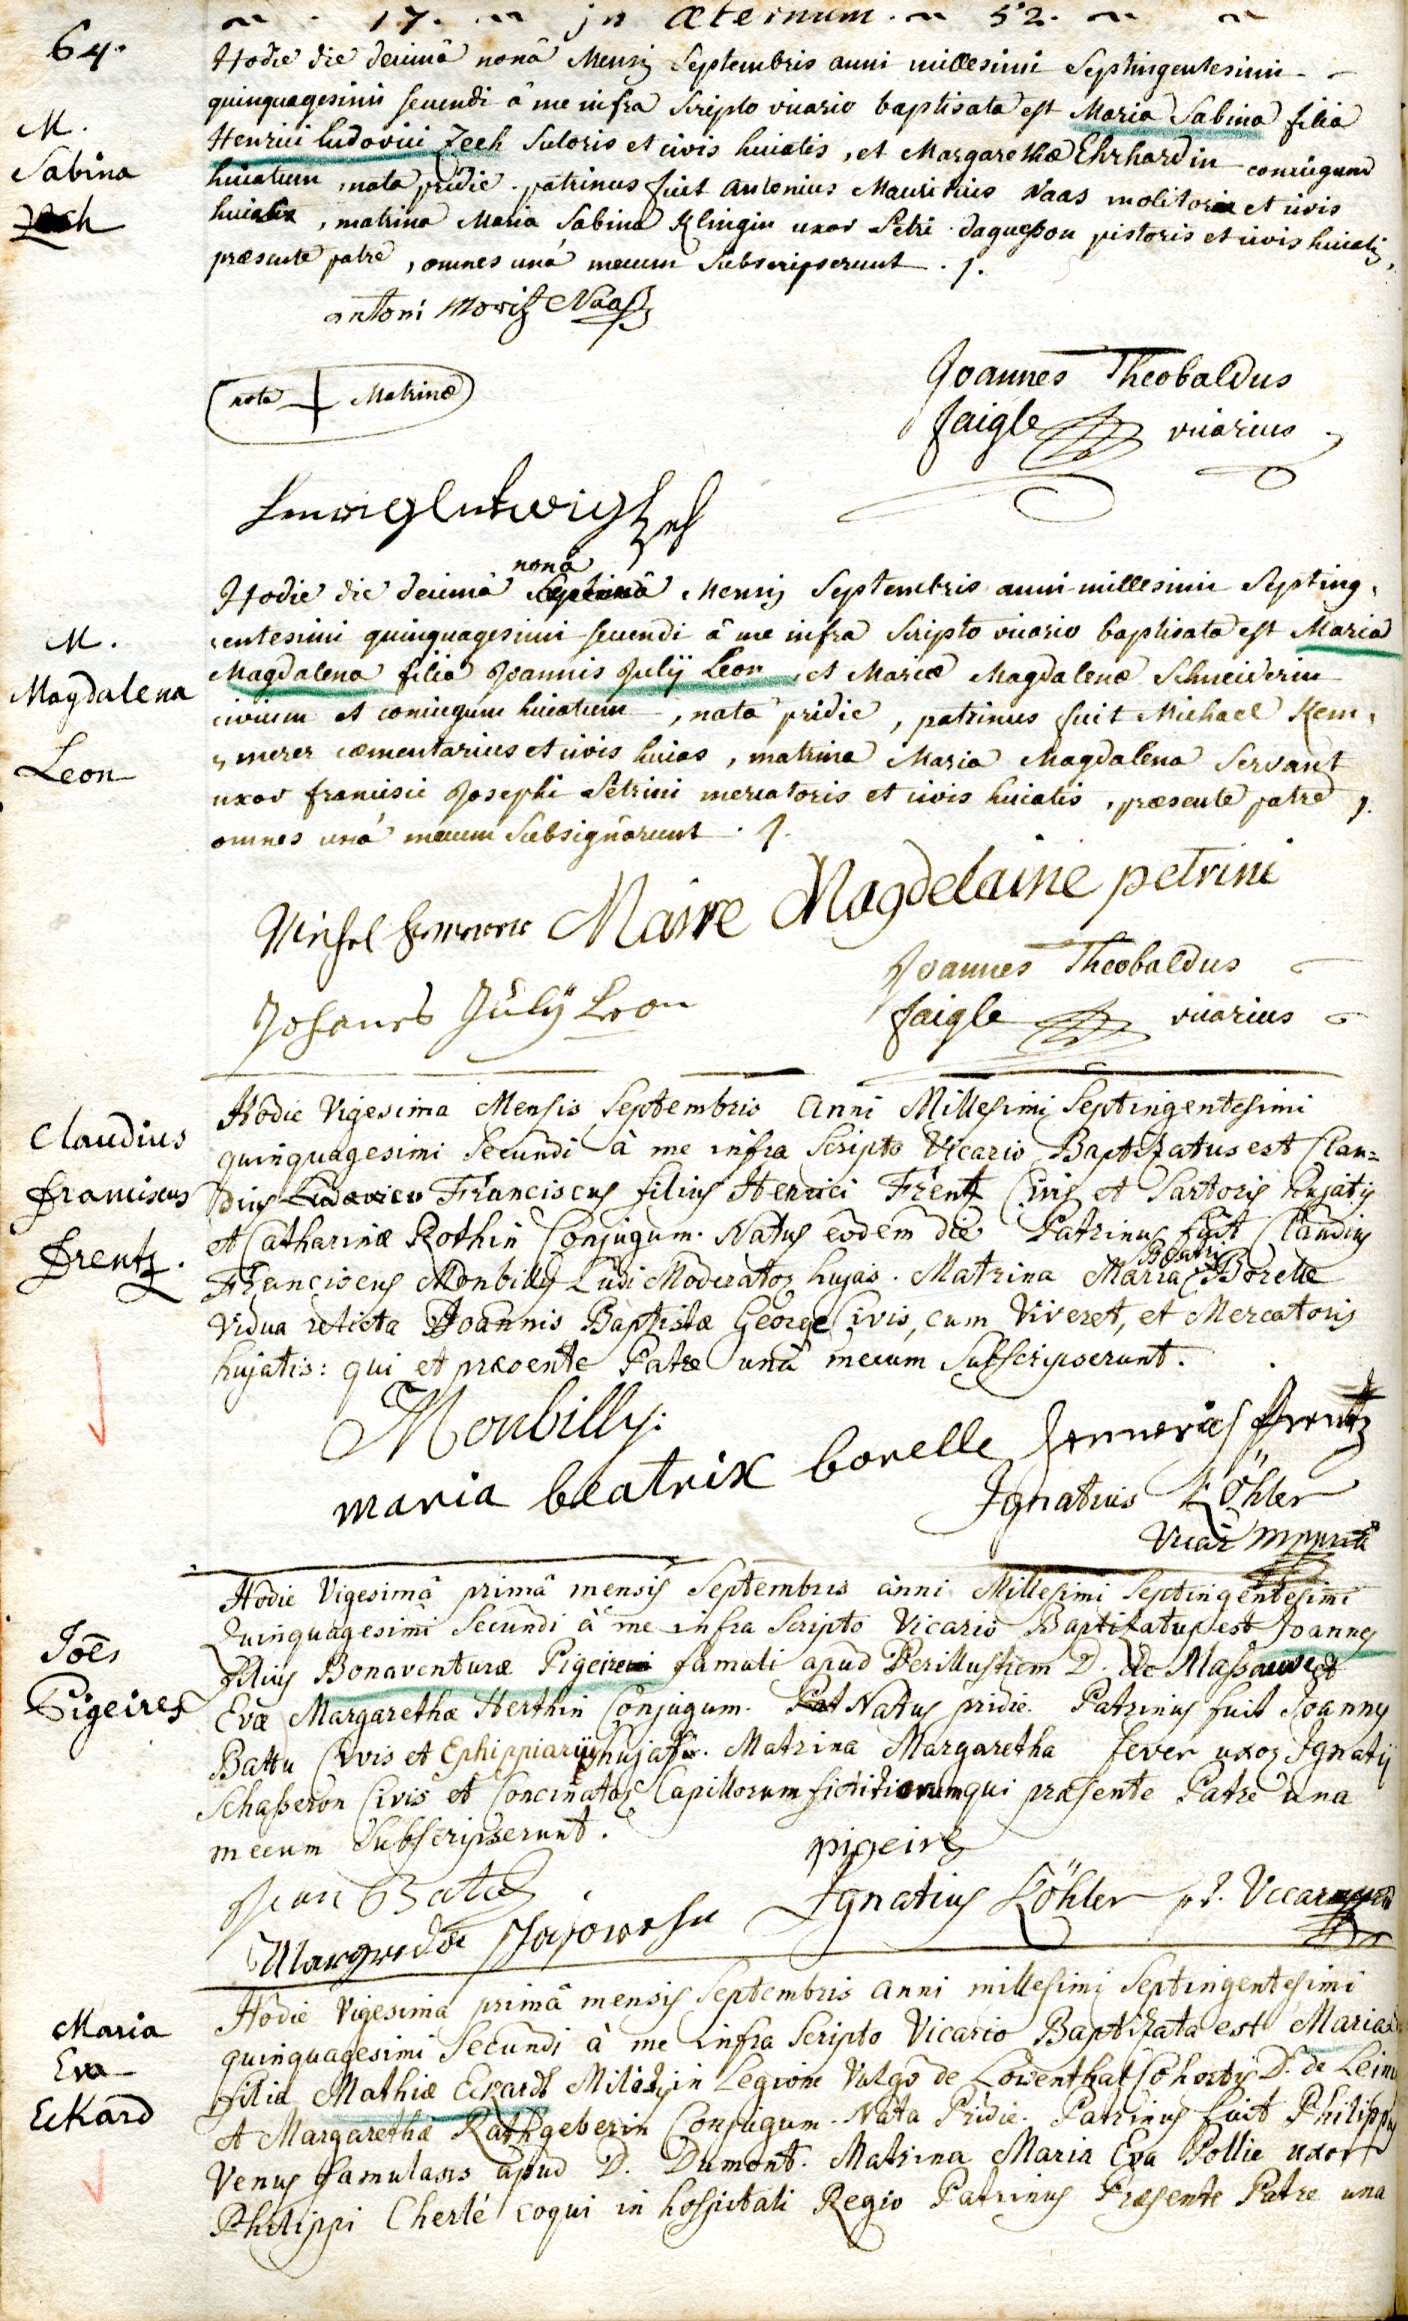 17. in æternum. 52.
64.
Hodie die decimâ nonâ Mensis Septembris anni millesimi Septingentesimi
quinquagesimi secundi â me infra scripto vicario baptisata est Maria Sabina filia
Henrici Ludovici Zech Sutoris et civis huiatis, et Margarethæ Ehrhardin coniugum
huiatum, nata pridie. patrinus fuit Antonius Mauritius Naas molitor et civis
huias, matrina Maria Sabina Klingin uxor Petri Daguesson pistoris et civis huiatis,
præsente patre, omnes unâ mecum subscripserunt. /.
M.
Sabina
Zech
antoni Moritz Naas
nota + Matrinæ
Joannes Theobaldus
Jaigle vicarius
Henrig Lutwig Zech
Hodie die decimâ nonâ Septimâ Mensis Septembris anni millesimi Septing,
,entesimi quinquagesimi secundi â me infra scripto vicario baptisata est Maria
Magdalena filia Joannis Julÿ Leon, et Mariæ Magdalenæ Schneiderin
civium et coniugum huiatum, nata pridie, patrinus fuit Michael Kem,
,merer cæmentarius et civis huias, matrina Maria Magdalena Servant
uxor francisci Josephi Petrini mercatoris et civis huiatis, præsente patre,
omnes unâ mecum subsignarunt. /.
M.
Magdalena
Leon
Michel Kemmerer Marie Magdelaine petrini
Johanes Julÿ Leon
Joannes Theobaldus
Jaigle vicarius
Hodie Vigesima Mensis Septembris Anni Millesimi Septingentesimi
quinquagesimi Secundi à me infra Scripto Vicario Baptizatus est Clau=
dius Ludovicus Franciscus filius Henrici Frentz Civis et Sartoris hujatis
et Catharinæ Rothin Conjugum. Natus eodem die Patrinus fuit Claudius
Franciscus Monbilly Ludi Moderator hujas. Matrina Maria Beatrix Borelle
Vidua relicta Joannis Baptistæ George Civis, cum Viveret, et Mercatoris
hujatis: qui et præsente Patre unâ mecum Subscripserunt.
Claudius
franciscus
frentz.
Monbilly:
maria beatrix borelle Hennerich frentz
Ignatius Köhler
Vicar mppria
Hodie Vigesimâ primâ mensis Septembris anni Millesimi Septingentesimi
Quinquagesimi Secundi à me infra Scripto Vicario Baptizatus est Joannes
filius Bonaventuræ Pigeire famuli apud Perillustrem D. de Massauve et
Evæ Margarethæ Herthin Conjugum. Pat Natus pridie. Patrinus fuit Joannes
Battu Civis et Ephippiarius hujas. Matrina Margaretha fever uxor Ignatij
Schasseron Civis et Concinatoris Capillorum fictitiorum qui præsente Patre una
mecum Subscripserunt.
Joes
Pigeires
pigeire
Jean Batu
Ignatius Köhler p.t. Vicar mppria
Margreda
Hodie Vigesima primâ mensis Septembris anni millesimi Septingentesimi
quinquagesimi Secundi à me infra Scripto Vicario Baptizata est Maria
filia Mathiæ Eckardt Militis in Legione Vulgo de Lowenthal Cohortis D. de Lein
et Margarethæ Rathgeberin Conjugum. Nata Pridie. Patrinus fuit Philippus
Venus famulans apud D. Dumont. Matrina Maria Eva Pollie uxor
Philippi Cherlé coqui in hospitali Regio Patrinus Præsente Patre una
Maria
Eva
Eckard